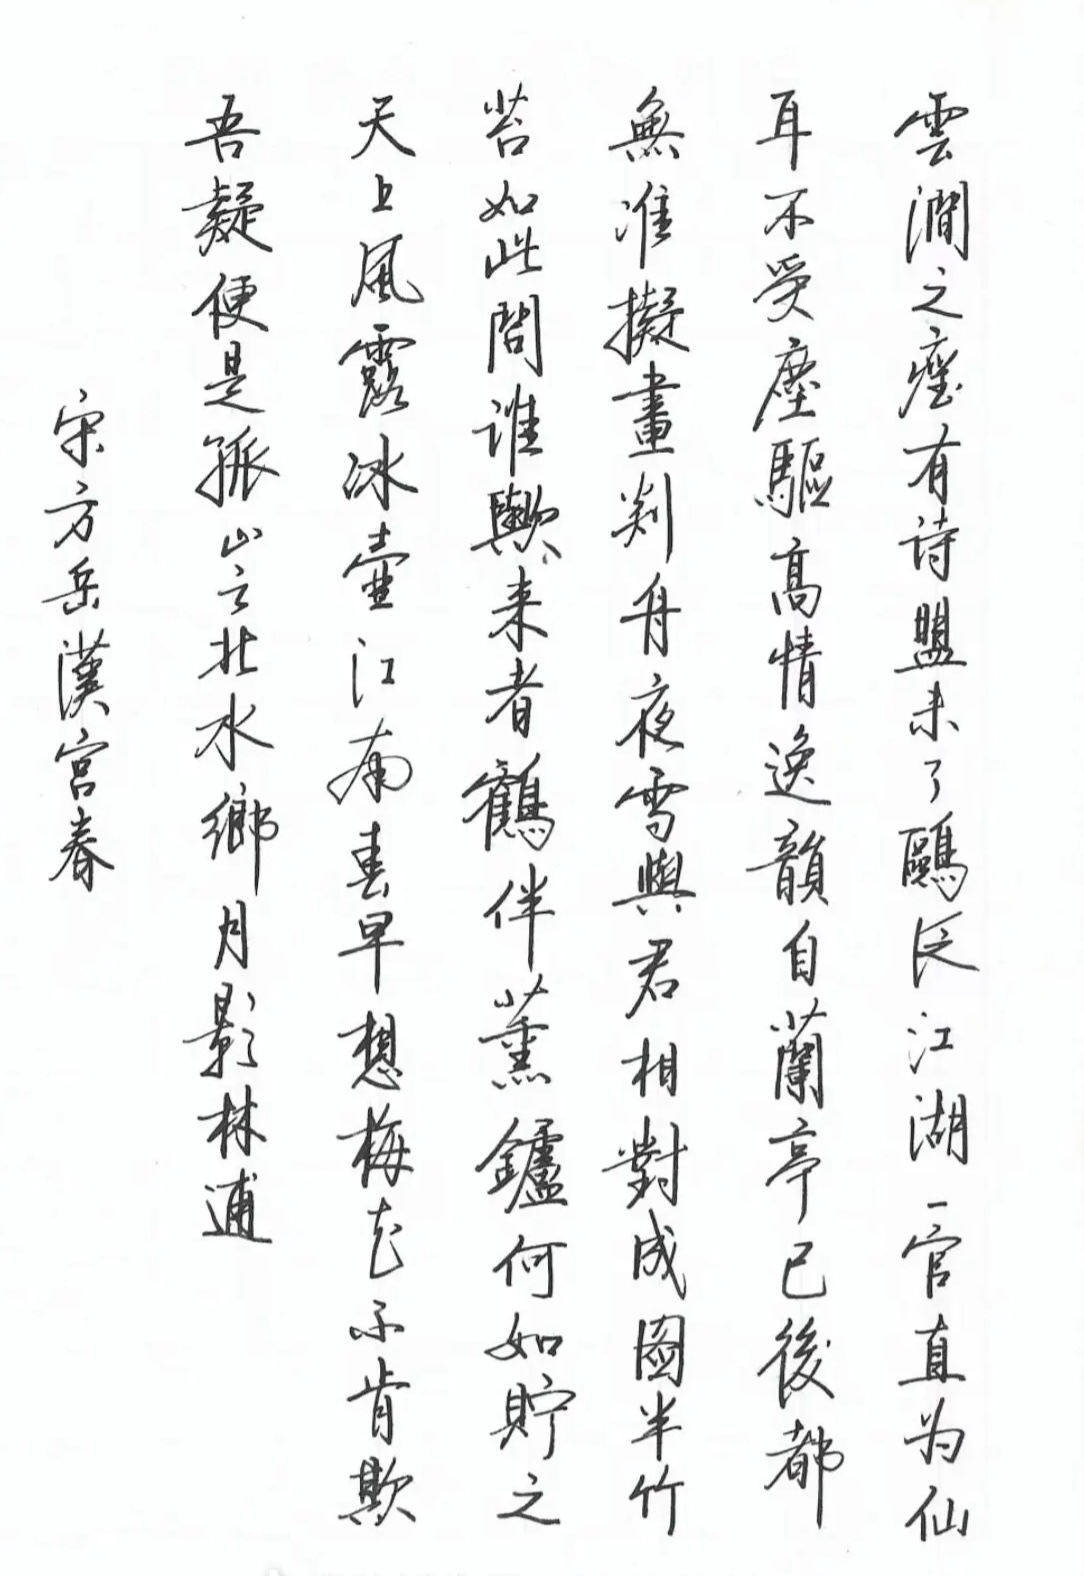 雲澗之癯有詩盟未了鷗泛江湖一官直为仙
耳不受塵驅高情逸韻自蘭亭已後都
無准擬畫剡舟夜雪與君相對成图半竹
苔如此問誰歟来者鶴伴薰鑪何如貯之
天上風露冰壷江南春早想梅花不肯欺
吾疑便是孤山之北水鄉月影林逋
宋方岳漢宫春